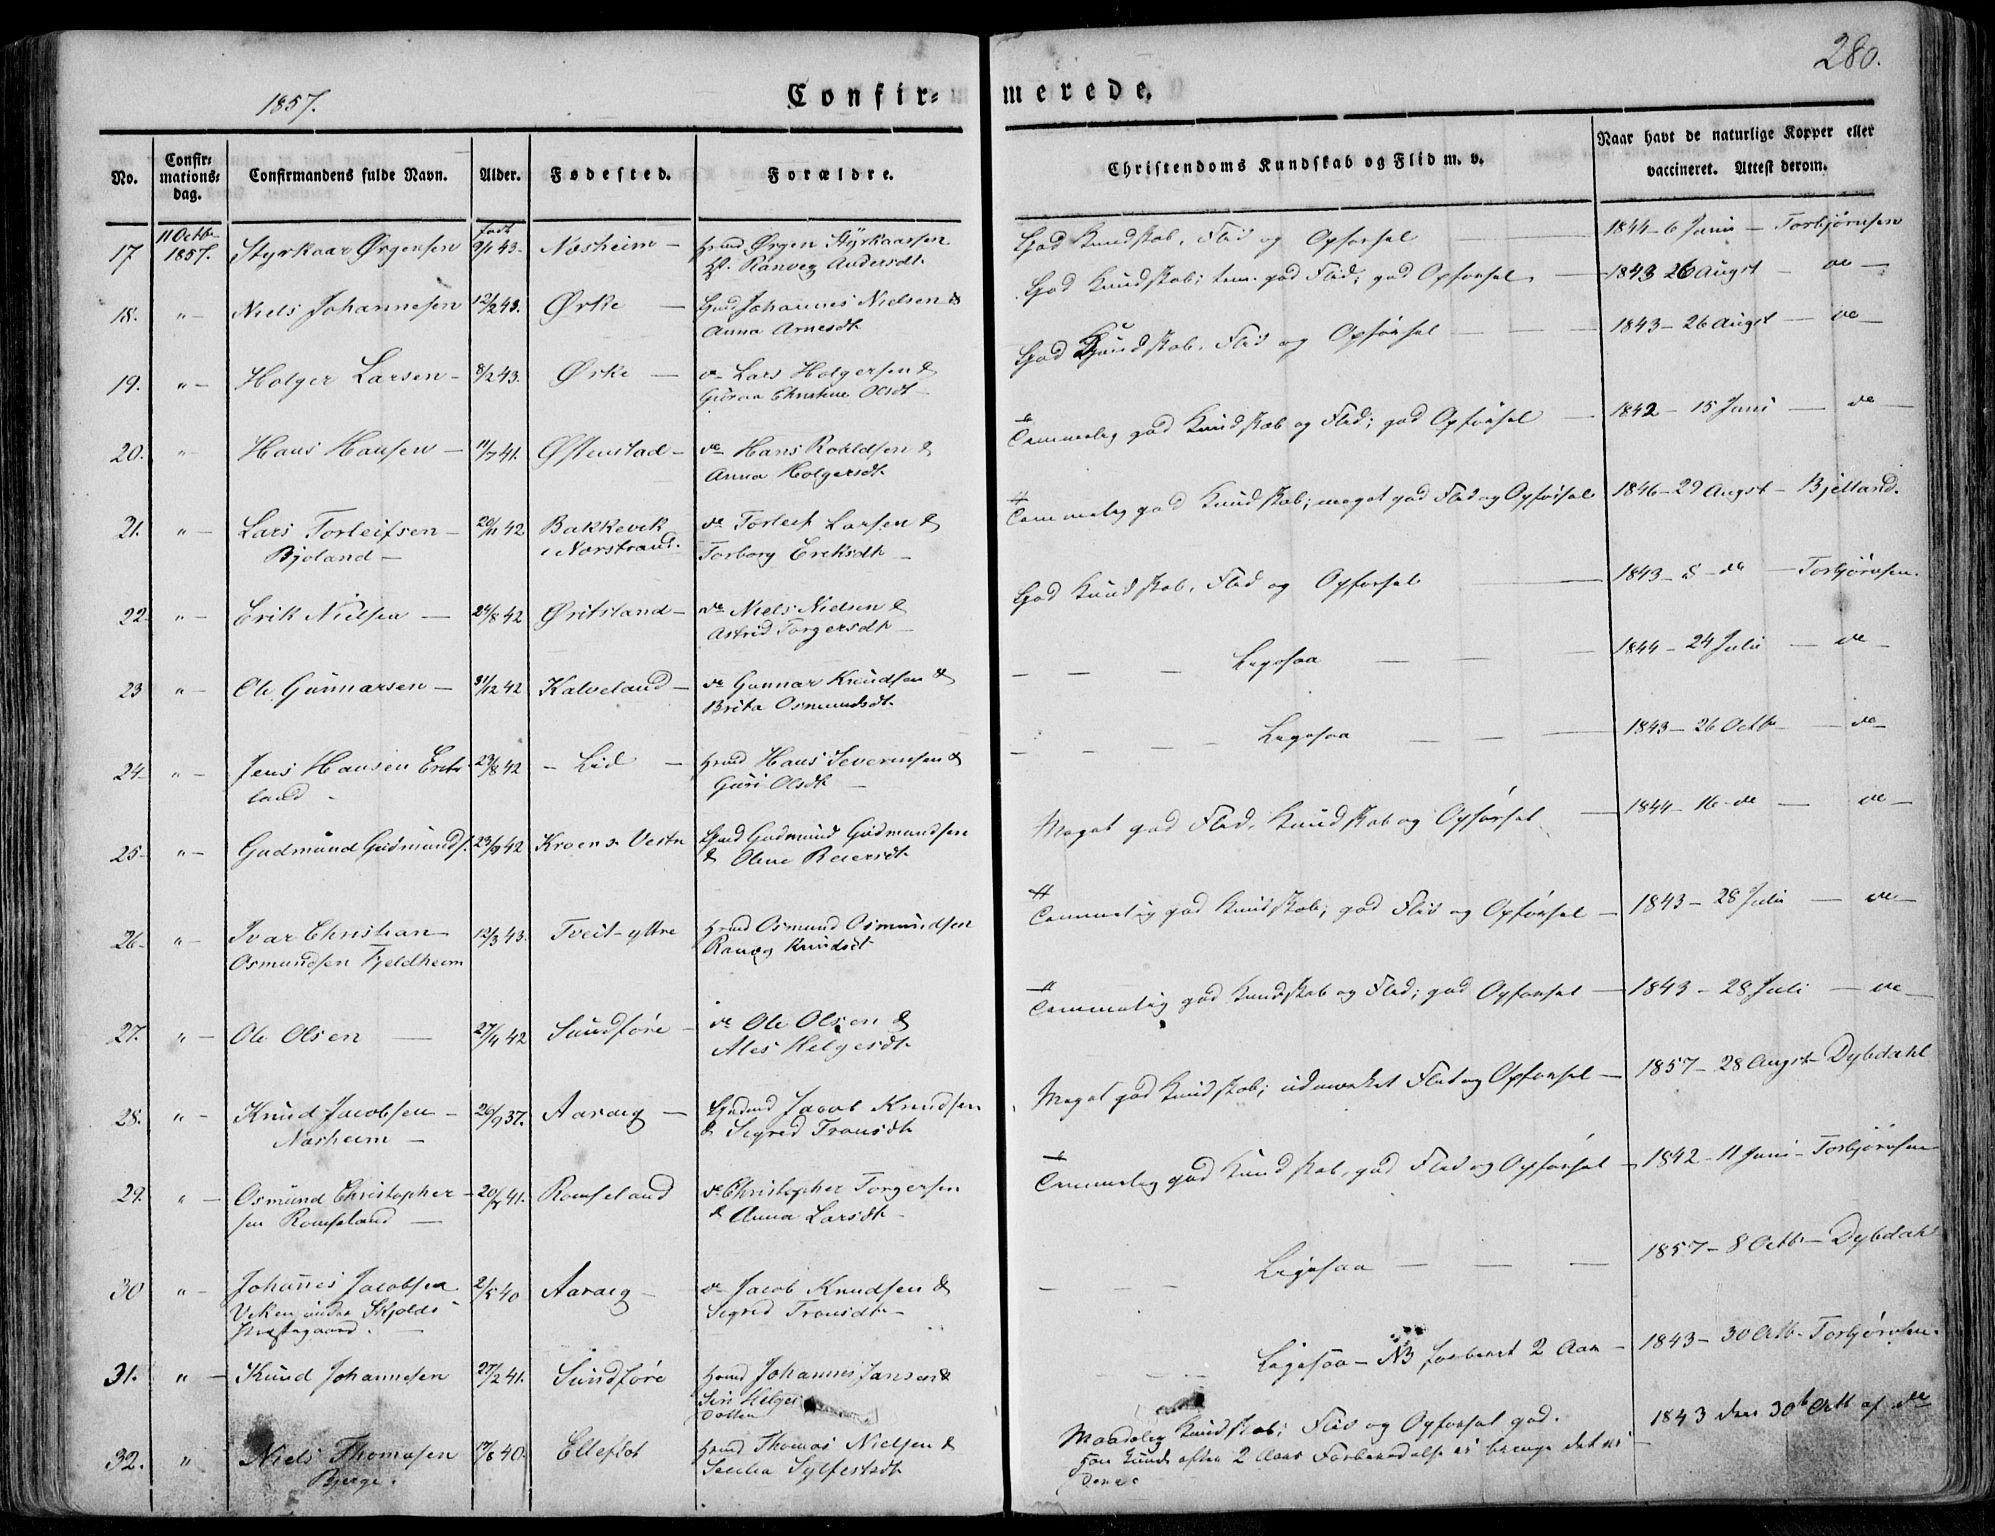 280.
1857.
Confir=
merede.
No.
Confir=
mations=
dag.
Confirmandens fulde Navn.
Alder.
Fødested.
Forældre.
Christendoms Kundskab og Flid m. v.
Naar havt de naturlige Kopper eller
vaccineret. Attest derom.
17 11 Octbr 1857. Styrkaar Ørgensen født 9/1 43. Næsheim Hmd Ørgen Styrkaarsen
Ranveg Andersdt.
God Kundskab, Flid og Opførsel 1844 6 Juni Torbjørnsen
18. " Niels Johannesen 12/2 43. Ørke Gmd Johannes Nielsen &
Anna Arnesdt.
God Kundskab; tem. god Flid; god Opførsel 1843 26 Augst do
19. " Holger Larsen 8/2 43. Ørke do Lars Holgersen &
Christine Olsdt
God Kundskab, Flid og Opførsel 1843 26 Augst do
20. " Hans Hansen 11/7 41. Østenstad do Hans Roaldsen &
Anna Holgersdt.
Temmelig god Kundskab og Flid; god Opførsel 1842 15 Juni do
21. " Lars Torleifsen
Bjoland
20/11 42 Bakkevik
i Norstrand.
do Torleif Larsen &
Torborg Eriksdt.
Temmelig god Kundskab; meget god Flid og Opførsel 1846 29 Augst Bjelland.
22 " Erik Nielsen 24/8 42 Øritsland do Niels Nielsen &
Astrid Torgersdt.
God Kundskab, Flid og Opførsel 1843 8 do Torbjørnsen.
23 " Ole Gunnarsen 31/12 42 Kalveland do Gunnar Knudsen &
Brita Osmundsdt.
Ligesaa 1844 24 Juli do
24 " Jens Hansen Erits
land
23/8 42 Lid Hmd Hans Severinsen &
Guri Olsdt.
Ligesaa 1843 26 Octb do
25 " Gudmund Gudmunds. 23/9 42 Vestre Gmd Gudmund Gudmundsen
& Oline Reiersdt.
Meget god Flid, Kundskab og Opførsel 1844 16 do do
26 " Ivar Christian
Osmundsen Fjeldheim
12/3 43. Tveit ytre Hmd Osmund Osmundsen
Knudsdt
Temmelig god Kundskab; god Flid og Opførsel 1843 28 Juli do
27. " Ole Olsen 42 Sundføre do Ole Olsen &
Ales Helgesdt.
Temmelig god Kundskab og Flid; god Opførsel 1843 28 Juli do
28. " Knud Jacobsen
Næsheim
26/9 37. Aarvig Jacob Knudsen
& Sigrid
Meget god Kundskab; udmærket Flid og Opførsel 1857 28 Augst Dybdahl
29. " Osmund Christopher
sen Romseland
41. Romseland do Christopher Torgersen
& Anna Larsdt.
Temmelig god Kundskab, god Flid og Opførsel 1842 11 Juni Torbjørnsen
30 " Johannes Jacobsen
Viken under Skjolds
Præstegaard.
2/5 40 Aarvig do Jacob Knudsen &
Sigrid
Ligesaa 1857 8 Octb Dybdahl
31. " Knud Johannesen 27/2 41. Sundføre Hmd Johannes Jansen &
Siri Helges
datter
Ligesaa NB forberedt 2 Aar 1843 30 Octb. Torbjørnsen.
32. " Niels Thomasen
Bjerge.
40 Hmd Thomas Nielsen &
Sylfestsdt
Maadelig Kundskab; Flid og Opførsel god.
Han kunde efter 2 Aars Forberedelse ei bringe det vi
dere.
1843 den 30te Octb af do